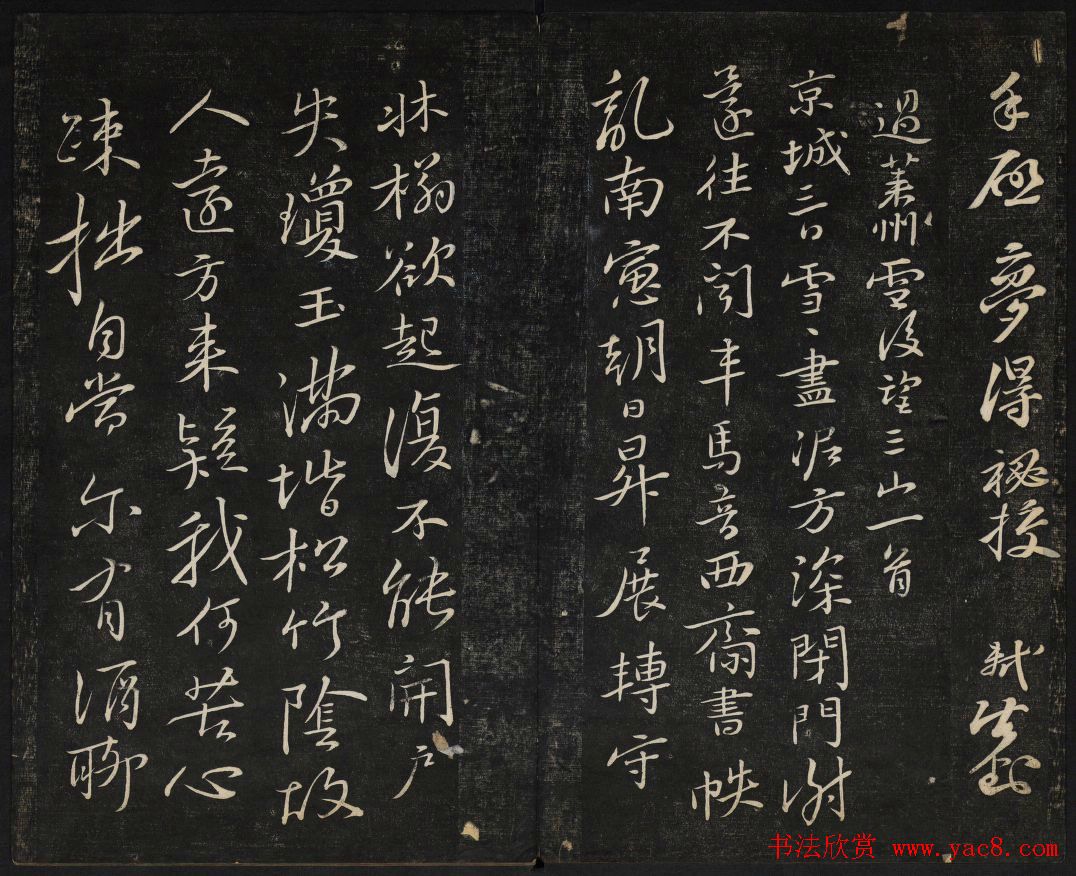 手啟夢得秘校　軾封
過萊州雪後望三山一首
京城三日雪〻盡泥方深閉門謝
還往不聞車馬音西齋書帙
亂南窻朝日昇展轉守
牀榻欲起復不能開戶
失瓊玉滿堦松竹陰故
人遠方來疑我何苦心
疎拙自當尔有酒聊
书法欣赏 www.yac8.com